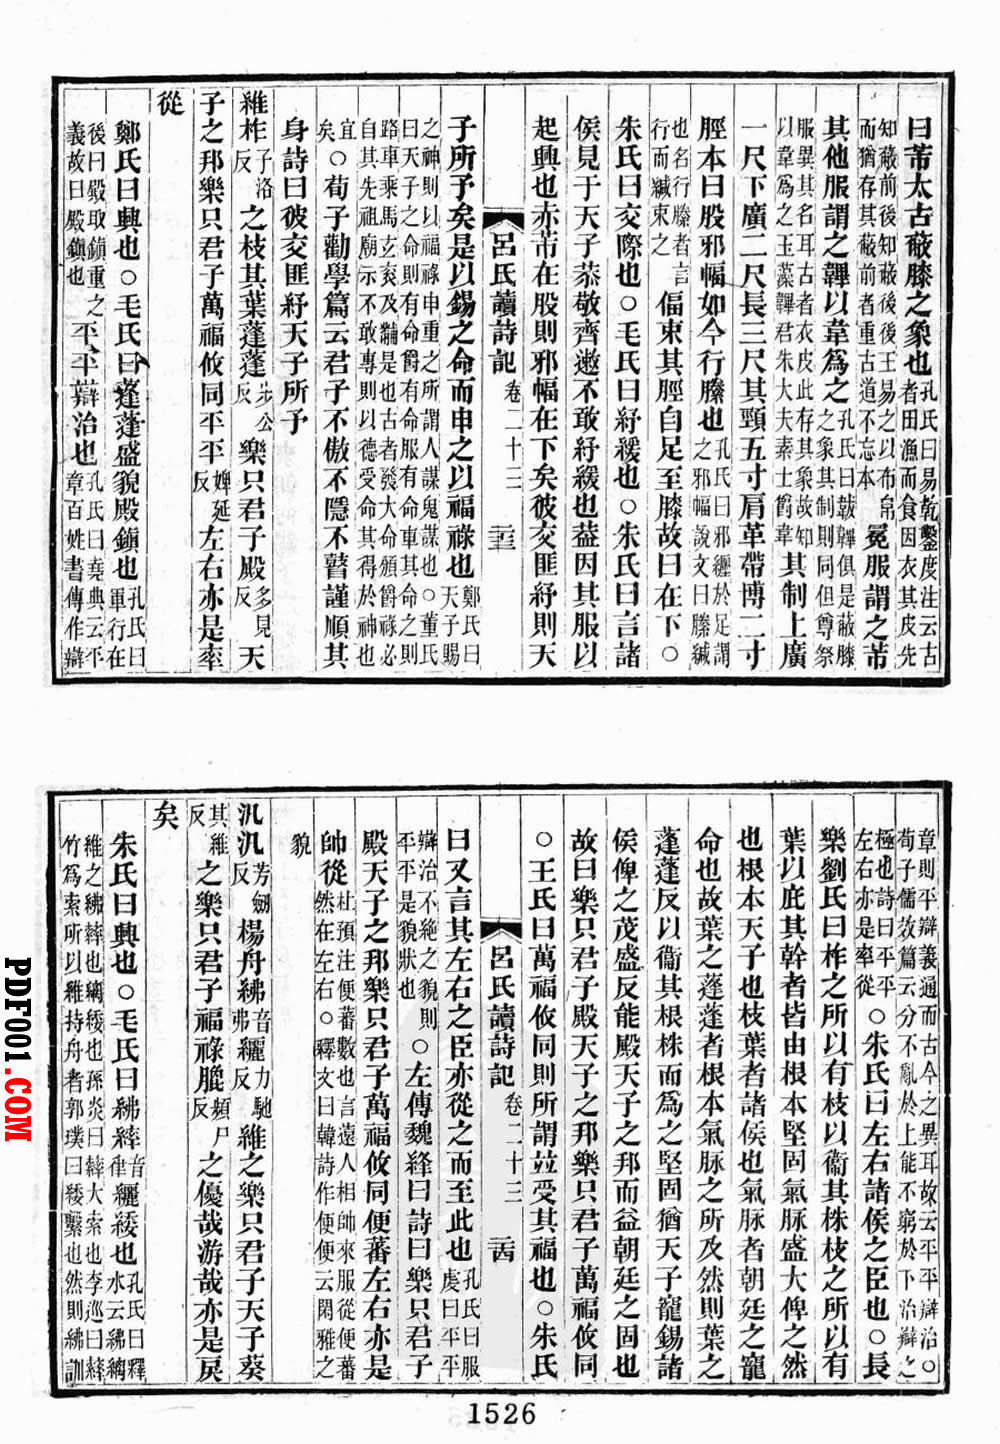 曰芾太古蔽膝之象也孔氏曰易乾鑿度注云古者田漁而食因衣其皮先
知蔽前後知蔽後後王易之以布帛而猶存其蔽前者重古道不忘本冕服謂之芾
其他服謂之韠以韋爲之孔氏曰韍韠俱是蔽膝之象其制則同但尊祭
服異其名耳古者衣皮此存其象故知以韋爲之玉藻韠君朱大夫素士爵韋其制上廣
一尺下廣二尺長三尺其頸五寸肩革帶博二寸
脛本曰股邪幅如今行縢也孔氏曰邪纏於足謂之邪幅說文曰縢緘
也名行縢者言行而緘束之偪束其脛自足至膝故曰在下○
朱氏曰交際也○毛氏曰紓緩也○朱氏曰言諸
侯見于天子恭敬齊遫不敢紓緩也蓋因其服以
起興也赤芾在股則邪幅在下矣彼交匪紓則天
呂氏讀詩記 卷二十三 三十三
子所予矣是以錫之命而申之以福祿也鄭氏曰天子賜
之神則以福祿申重之所謂人謀鬼謀也○董氏曰天子之命則有命爵有命服有命車其命之則
路車乘馬玄袞及黼是也古者發大命頒爵祿必自其先祖廟示不敢專則以德受命其得於神也
宜矣○荀子勸學篇云君子不傲不隱不瞽謹順其
身詩曰彼交匪紓天子所予
維柞子洛反之枝其葉蓬蓬步公反樂只君子殿多見反天
子之邦樂只君子萬福攸同平平婢延反左右亦是率
從
鄭氏曰興也○毛氏曰蓬蓬盛貌殿鎮也孔氏曰軍行在
後曰殿取鎮重之義故曰殿鎮也平平辯治也孔氏曰堯典云平章百姓書傳作辯
章則平辯義通而古今之異耳故云平平辯治○荀子儒效篇云分不亂於上能不窮於下治辯之
極也詩曰平平左右亦是率從○朱氏曰左右諸侯之臣也○長
樂劉氏曰柞之所以有枝以衞其株枝之所以有
葉以庇其幹者皆由根本堅固氣脉盛大俾之然
也根本天子也枝葉者諸侯也氣脉者朝廷之寵
命也故葉之蓬蓬者根本氣脉之所及然則葉之
蓬蓬反以衞其根株而爲之堅固猶天子寵錫諸
侯俾之茂盛反能殿天子之邦而益朝廷之固也
故曰樂只君子殿天子之邦樂只君子萬福攸同
○王氏曰萬福攸同則所謂竝受其福也○朱氏
呂氏讀詩記 卷二十三 三十四
曰又言其左右之臣亦從之而至此也孔氏曰服虔曰平平
辯治不絶之貌則平平是貌狀也○左傳魏絳曰詩曰樂只君子
殿天子之邦樂只君子萬福攸同便蕃左右亦是
帥從杜預注便蕃數也言遠人相帥來服從便蕃然在左右○釋文曰韓詩作便便云閑雅之
貌
汎汎芳劒反楊舟紼音弗纚力馳反維之樂只君子天子葵
其維反之樂只君子福祿膍頻尸反之優哉游哉亦是戾
矣
朱氏曰興也○毛氏曰紼繂音律纚緌也孔氏曰釋水云紼縭
維之紼繂也縭緌也孫炎曰繂大索也李巡曰繂竹爲索所以維持舟者郭璞曰緌繫也然則紼訓
1526
PDF001.COM